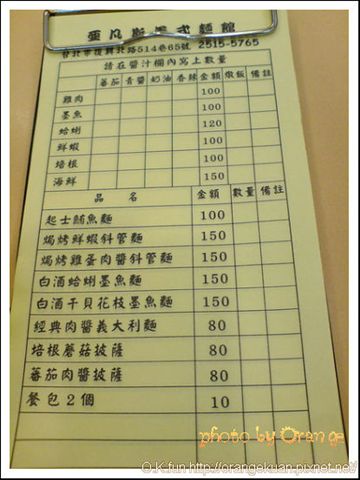 亞凡斯義式麵館
台北市復興北路514巷65號 2515-5765
請在醬汁欄內寫上數量
蕃茄 青醬 奶油 香辣 金額 燉飯 備註
雞肉 100
墨魚 100
蛤蜊 120
鮮蝦 100
培根 100
海鮮 150
品名 金額 數量 備註
起士鮪魚麵 100
焗烤鮮蝦斜管麵 150
焗烤雞蛋肉醬斜管麵 150
白酒蛤蜊墨魚麵 150
白酒干貝花枝墨魚麵 150
經典肉醬義大利麵 80
培根蘑菇披薩 80
蕃茄肉醬披薩 80
餐包2個 10
photo by Orange
O.K.fun http://orangekuan.pixnet.net/